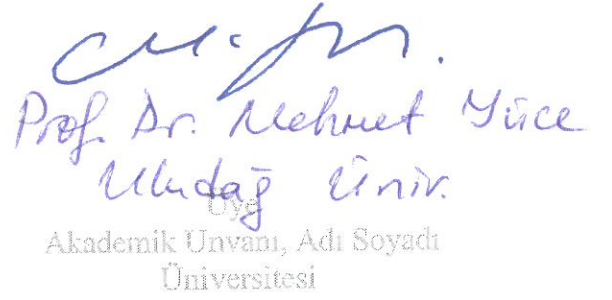 Prof. Dr. Mehmet Yüce
Uludağ Üniv.
Üye
Akademik Unvanı, Adı Soyadı
Üniversitesi